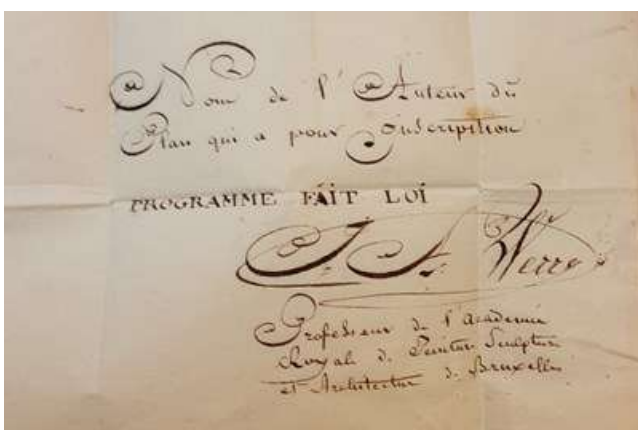 Nom de l'Auteur du
Plan qui a pour Inscription
PROGRAMME FAIT LOI
Professeur de l'academie
Royal de Peintur Sculptur
et Architectur de Bruxelles